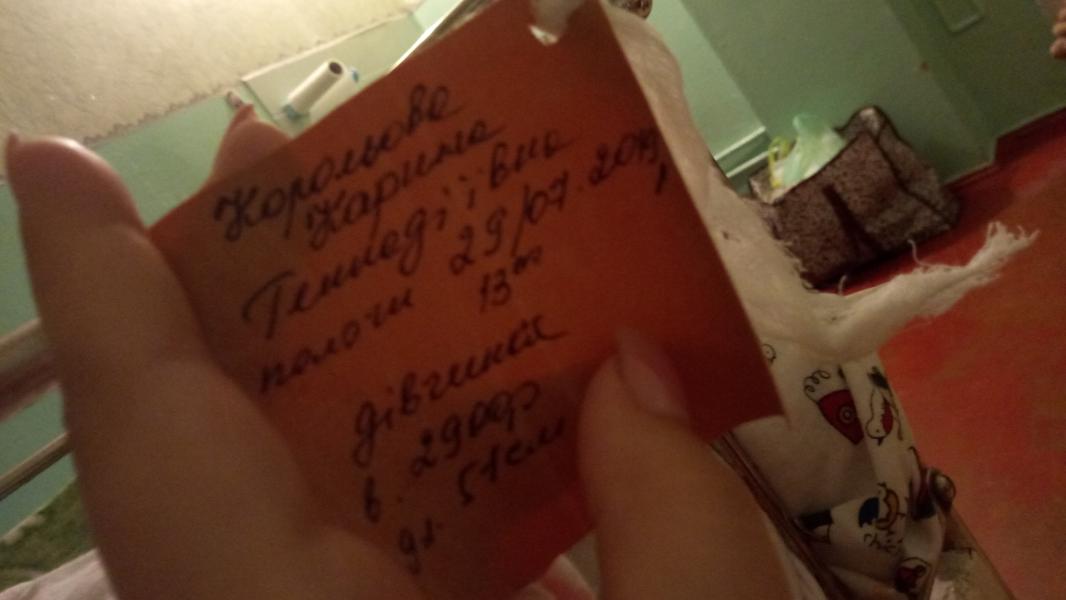 Корольова
Карина
Геннадіївна
пологи 29/07.2019,
13⁰⁰
дівчинка
в. 2900р
дл. 51см